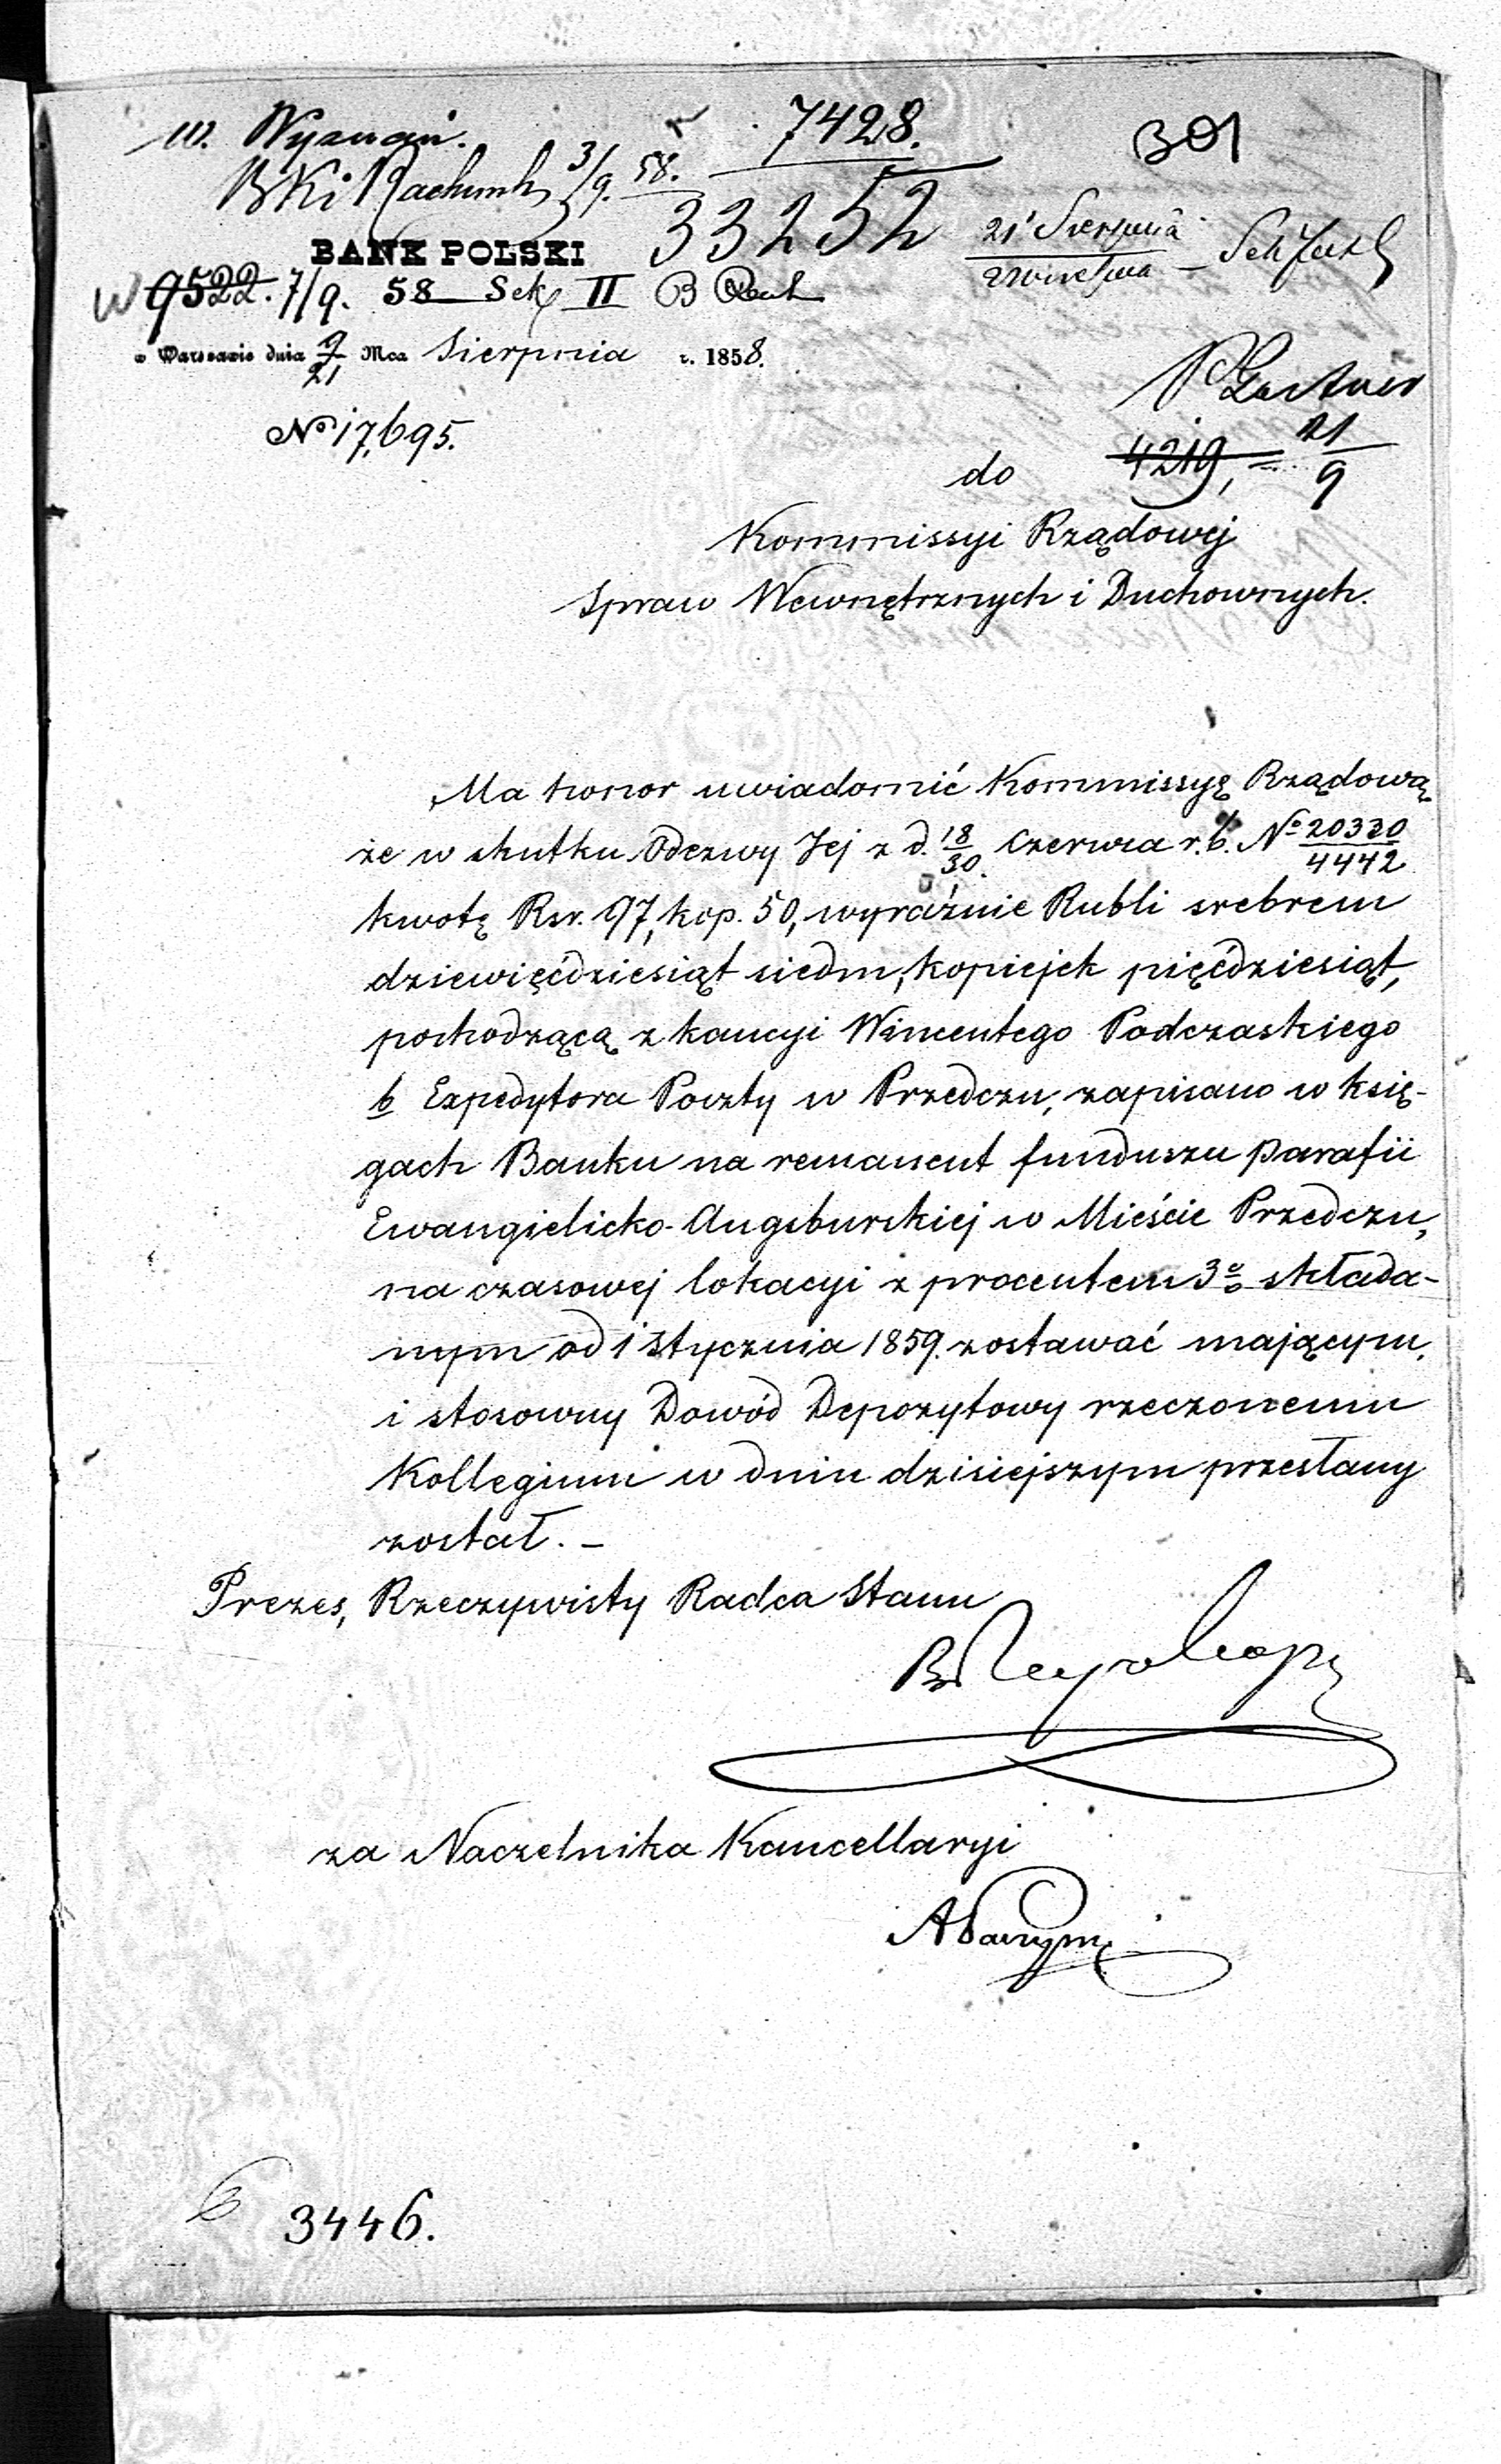 W. Wyznań.
7428.
301
3/9. 58.
33252
BANK POLSKI
21 Sierpnia
Września
9522. 7/9. 58 Sek II B
w Warszawie dnia 9/21 Mca Sierpnia r. 1858.
No 17,695.
4219, 21/9
do
Kommissyi Rządowej
Spraw Wewnętrznych i Duchownych.
Ma honor uwiadomić Kommissyę Rządową
że w skutku Odezwy Jej z d. 18/30. Czerwca r.b. No 20330/4442
kwotę Rsr. 97, kop. 50, wyraźnie Rubli srebrem
dziewięćdziesiąt siedm, kopiejek pięćdziesiąt,
pochodzącą z kaucyi Wincentego Podczaskiego
b Expedytora Poczty w Przedczu, zapisano w księ-
gach Banku na remanent funduszu parafii
Ewangielicko-Augsburskiej w Mieście Przedczu,
na czasowej lokacyi z procentem 3% składa-
nym od 1 stycznia 1859. zostawać mającym,
i stosowny Dowód Depozytowy rzeczonemu
Kollegium w dniu dzisiejszym przesłany
został. –
Prezes, Rzeczywisty Radca Stanu
za Naczelnika Kancellaryi
3446.